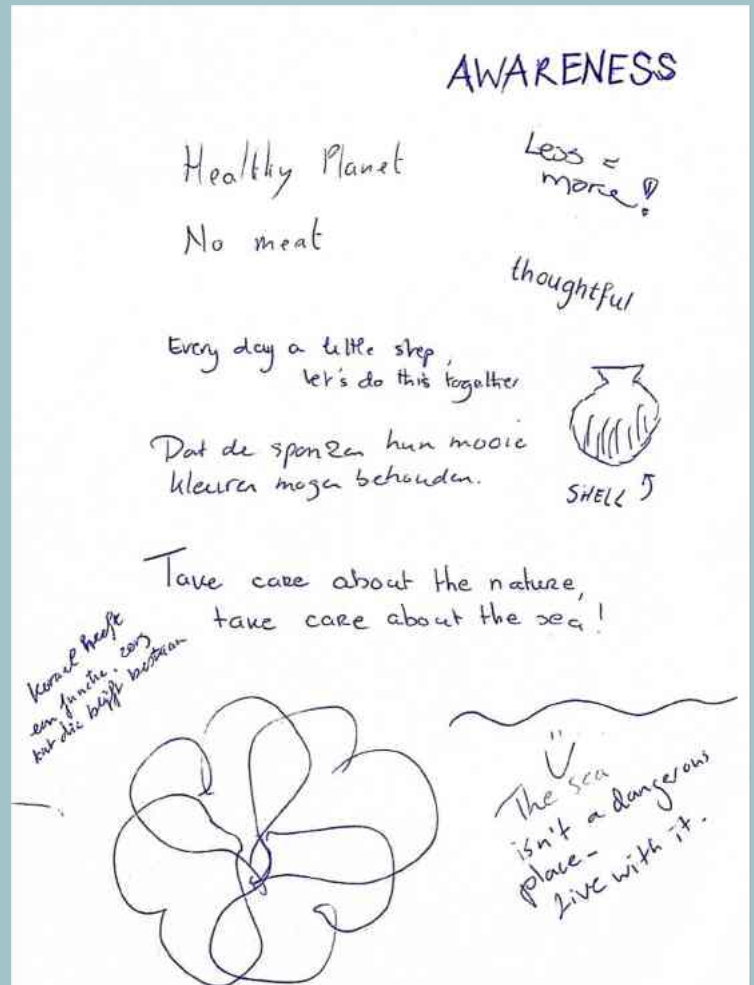 AWARENESS
Healthy Planet
Less =
more!
No meat
thoughtful
Every day a little step,
let's do this together
Dat de sponzen hun mooie
kleuren mogen behouden.
SHELL
Take care about the nature,
take care about the sea!
koraal heeft
een functie. zorg
dat die blijft bestaan
The sea
isn't a dangerous
place-
Live with it.